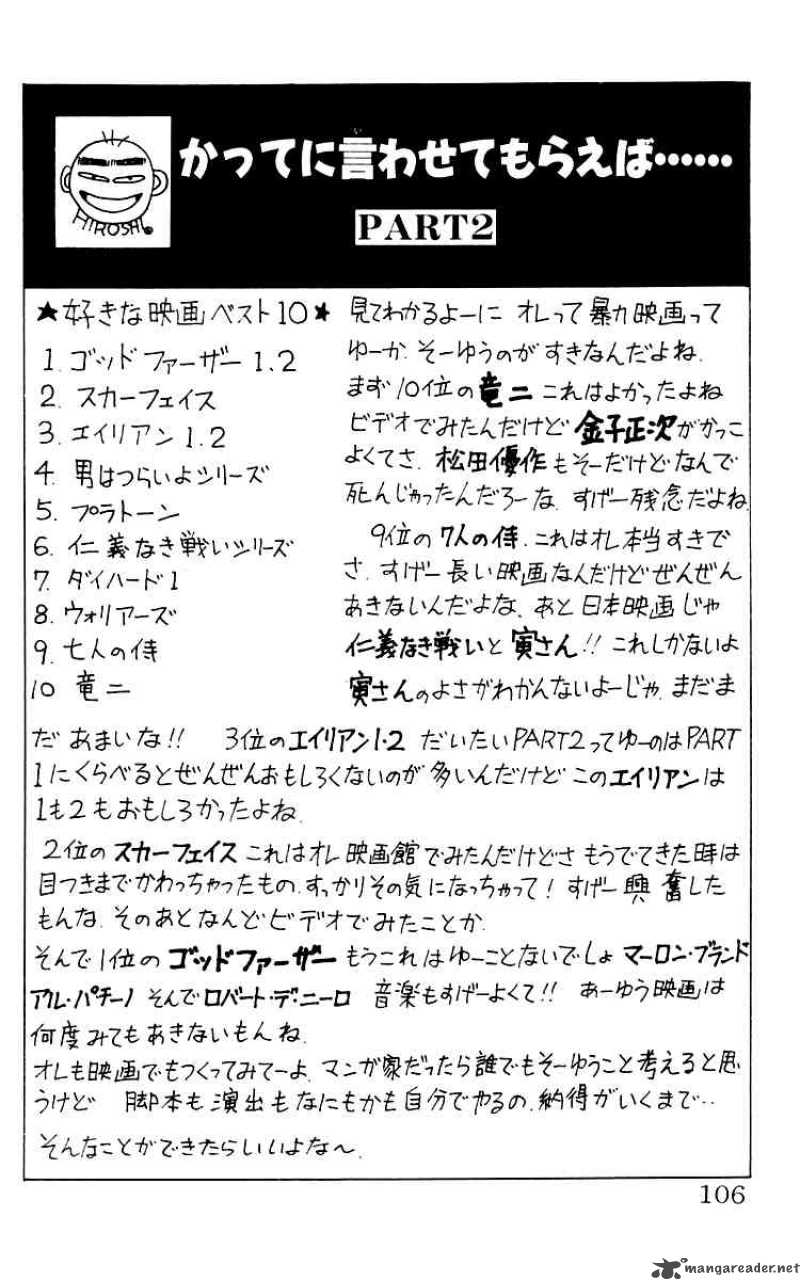 かってに言わせてもらえば……
PART2
HIROSHI.
★好きな映画ベスト10★
1. ゴッドファーザー1.2
2. スカーフェイス
3. エイリアン1.2
4. 男はつらいよシリーズ
5. プラトーン
6. 仁義なき戦いシリーズ
7. ダイハード1
8. ウォリアーズ
9. 七人の侍
10 竜二
見てわかるよーに オレって暴力映画って
ゆーか、そーゆうのがすきなんだよね.
まず10位の竜二 これはよかったよね
ビデオでみたんだけど 金子正次がかっこ
よくてさ. 松田優作もそーだけどなんで
死んじゃったんだろーな、すげー残念だよね.
9位の7人の侍.これはオレ本当すきで
さ.すげー長い映画なんだけどぜんぜん
あきないんだよな、あと日本映画じゃ
仁義なき戦いと寅さん!! これしかないよ
寅さんのよさがわかんないよーじゃ、まだま
だ あまいな!! 3位のエイリアン1・2 だいたいPART2ってゆーのはPART
1にくらべるとぜんぜんおもしろくないのが多いんだけど このエイリアンは
1も2もおもしろかったよね.
2位のスカーフェイス これはオレ映画館でみたんだけどさ もうでてきた時は
目つきまでかわっちゃったもの.すっかりその気になっちゃって! すげー興奮した
もんな.そのあとなんどビデオでみたことか.
そんで1位のゴッドファーザー もうこれはゆーことないでしょ マーロン・ブランド
アル・パチーノ そんでロバート・デ・ニーロ 音楽もすげーよくて!! あーゆう映画は
何度みてもあきないもんね.
オレも映画でもつくってみてーよ、マンガ家だったら誰でもそーゆうこと考えると思
うけど 脚本も演出もなにもかも自分でやるの.納得がいくまで‥
そんなことができたらいいよな〜.
106
mangareader.net